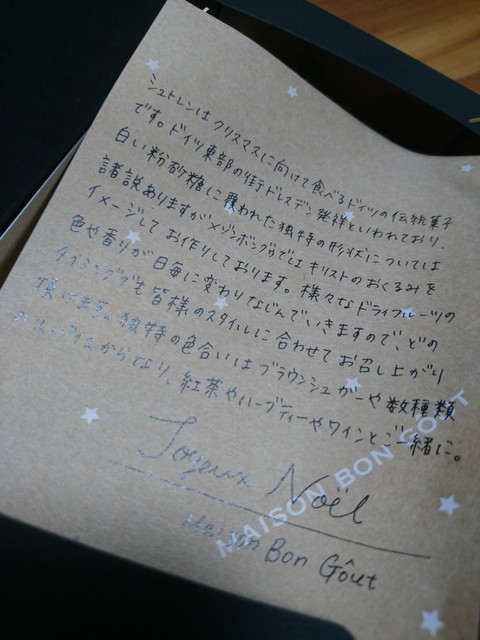 シュトレンは クリスマスに向けて食べるドイツの伝統菓子
です。ドイツ東部の街ドレスデン発祥といわれており、
白い粉砂糖に覆われた独特の形状については
諸説ありますがメゾンボングウでは キリストのおくるみを
イメージして お作りしております。様々なドライフルーツの
色や香りが日毎に変わりなじんでいきますので、どの
タイミングでも 皆様のスタイルに合わせて お召し上がり
頂けます。独特の色合いは ブラウンシュガーや 数種類
からなり、紅茶やハーブティーやワインとご一緒に。
Joyeux Noël
Maison Bon Goût
MAISON BON GOUT